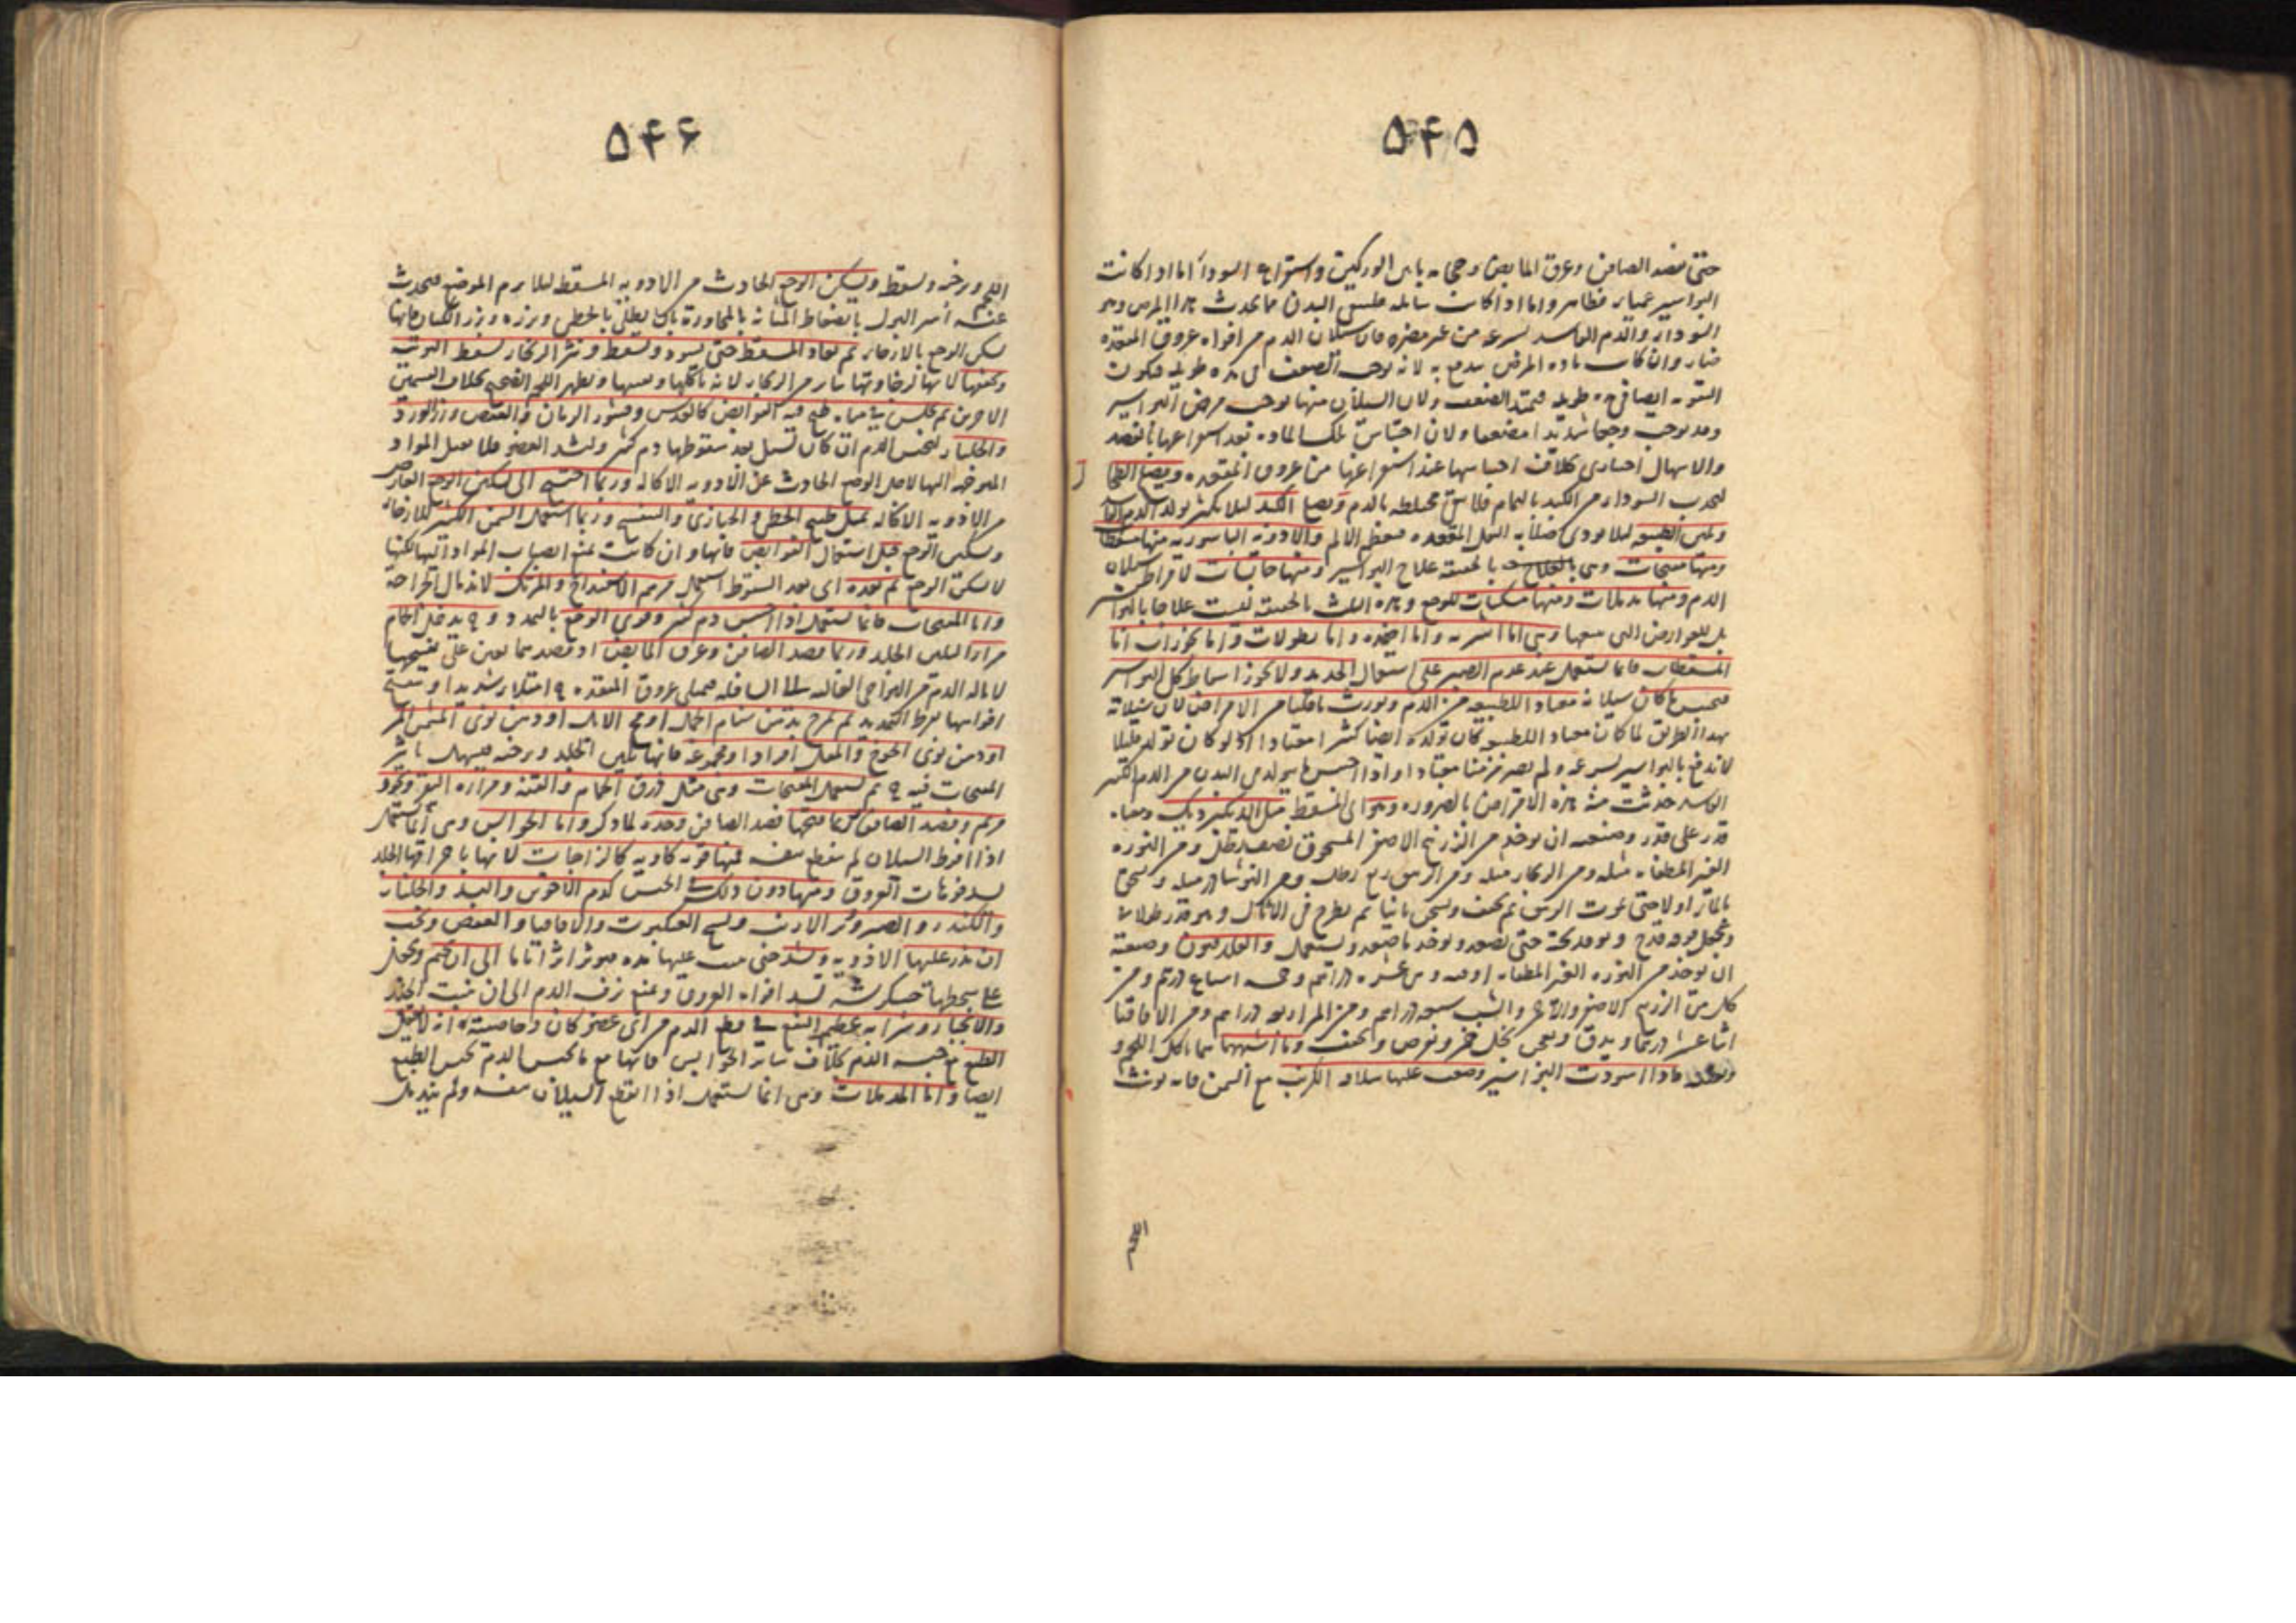 ۵۴۵
حتى فصد الصافن وعرق المابض وحجامة ما بين الوركين واستفراغ السوداء اما اذا كانت
البواسير عمياء فظاهر واما اذا كانت سائلة البدن مما يحدث هذا المرض وهو
السوداء والدم الفاسد بسرعة من غير مضرة فان سيلان الدم من افواه عروق المقعدة
ضار وان كانت مادة المرض تندفع به لانه يوجب الضعف في مدة طويلة فيكون
ايضا في مدة طويلة الضعف ولان السيلان منها يوجب مرض البواسير
وقد يوجب وجعا شديدا مضعفا ولان احتباس تلك المادة بعد استفراغها بالفصد
والاسهال اختياري بخلاف احتباسها عند استفراغها من عروق المقعدة ويصلح الطحال
لجذب السوداء من الكبد بالتمام فلا يبقى مختلطة بالدم ويصلح الكبد ليلا يكثر تولد الدم الفاسد
ويلين الطبيعة ليلا يوذي صلابة الثفل المقعدة فيعظم الالم والادوية الباسورية منها مسقطات
ومنها مفتحات وهي بالحقيقة علاج البواسير ومنها حابسات لافراط سيلان
الدم ومنها مدملات ومنها مسكنات للوجع وهذه الثلث بالحقيقة ليست علاجا للبواسير
بل للعوارض التي معها وهي اما اشربة واما اضمدة واما نطولات واما بخورات اما
المسقطات فانما تستعمل عند عدم الصبر على استعمال الحديد ولا يجوز اسقاط كل البواسير
فيحتبس ما كان سيلانه معتادا للطبيعة من الدم ويورث ما قلنا من الامراض لان سيلانه
بهذا الطريق لما كان معتادا للطبيعة كان تولده ايضا كثيرا معتادا اذ لو كان تولده قليلا
لاندفع بالبواسير بسرعة ولم يصر مزمنا معتادا واذا احتبس ما يتولد في البدن من الدم الكثير
الفاسد حدثت منه هذه الامراض بالضرورة وهو اى المسقط مثل الديك برديك ومعناه
قدر على قدر وصنعته ان يؤخذ من الزرنيخ الاصفر المسحوق نصف رطل ومن النورة
الغير المطفاة مثله ومن الزنجار مثله ومن الزيبق ربع رطل ومن النوشادر مثله ويسحق
بالماء اولا حتى يموت الزيبق ثم يجفف ويسحق ثانيا ثم يطرح في الاثال وهو قدر طولاني
ويجعل فوقه قدح ويوقد تحته حتى يصعد ويؤخذ ما صعد ويستعمل والفلدفيون وصنعته
ان يؤخذ من النورة الغير المطفاة اوقية وهي عشرة دراهم وخمسة اسباع درهم ومن
كل من الزرنيخ الاصفر والاحمر والشب سبعة دراهم ومن المر اربعة دراهم ومن الاقاقيا
اثنا عشر درهما ويدق ويعجن بخل خمر ويقرص ويجفف وما اشبههما مما ياكل اللحم و
فاذا اسودت البواسير وضعت عليها سلاقة الكرنب مع السمن فانه يونث
اللحم
۵۴۶
اللحم ويرخيه ويسقط ويسكن الوجع الحادث من الادوية المسقطة ليلا يرم الموضع فيحدث
عنه أسر البول بانضغاط المثانة بالمجاورة بان يطلى بالخطمي وبزره وبزر الكتان فانها
تسكن الوجع بالارخاء ثم يعاد المسقط حتى يسود ويسقط ونثر الزنجار يسقط التوتية
وتعفنها لانها لرخاوتها تتاثر من الزنجار لانه ياكلها ويعفنها ويظهر اللحم الصحيح بخلاف القسمين
الاخرين ثم يجلس في مياه طبخ فيه القوابض كالعدس وقشور الرمان والعفص وزر الورد
والجلنار لحبس الدم ان كان يسيل بعد سقوطها دم كثير وليشد العضو فلا يقبل المواد
المتوجهة اليها لاجل الوجع الحادث عن الادوية الاكالة وربما احتيج الى تسكين الوجع العارض
من الادوية الاكالة بمثل طبيخ الخطمي والخبازي والبنفسج وربما استعمل السمن الكثير للارخاء
وتسكين الوجع قبل استعمال القوابض فانها وان كانت تمنع انصباب المواد اليها لكنها
لا تسكن الوجع ثم بعده اى بعد السقوط استعمال مرهم الاسفيداج والمرتك لاندمال الجراحة
واما المفتحات فانما تستعمل اذا احتبس دم كثير وقوي الوجع بالتمدد و ح يدخل الحمام
مرارا لتليين الجلد وربما فصد الصافن وعرق المابض اذ فصدهما يعين على تفتيحها
لامالة الدم من النواحي العالية الى السافلة فيمتلي عروق المقعدة ح امتلاء شديدا وتنفتح
افواهها لفرط التمديد ثم يمرخ بدهن سنام الجمل او مخ الايل او دهن نوى المشمش المر
او دهن نوى الخوخ والمقل افرادا ومجموعة فانها تلين الجلد وترخيه فيسهل تاثير
المفتحات فيه ح ثم يستعمل المفتحات وهي مثل ذرق الحمام والقنة ومرارة البقر وبخور
مريم وفصد الصافن ربما فتحها فصد الصافن وحده لما ذكر واما الحوابس وهي انما تستعمل
اذا افرط السيلان ولم ينقطع بنفسه فمنها قوية كاوية كالزاجات لانها باحراقها الجلد
تسد فوهات العروق ومنها دون ذلك في الحبس كدم الاخوين والبسد والجلنار
والكندر والصبر ووبر الارنب ونسج العنكبوت والاقاقيا والعفص ويجب
ان يذر عليها الادوية ويشد حتى يمضي عليها مدة فيوثر اثرا تاما الى ان يلتحم ويتجفف
على سطحها خشكريشة تسد افواه العروق وتمنع نزف الدم الى ان ينبت الجلد
والانجبار وشرابه عظيم النفع في قطع الدم من اى عضو كان وخاصيته انه لا يعقل
الطبع مع حبسه الدم بخلاف سائر الحوابس فانها مع ما تحبس الدم تحبس الطبع
ايضا واما المدملات وهي انما تستعمل اذا انقطع السيلان بنفسه ولم يندمل